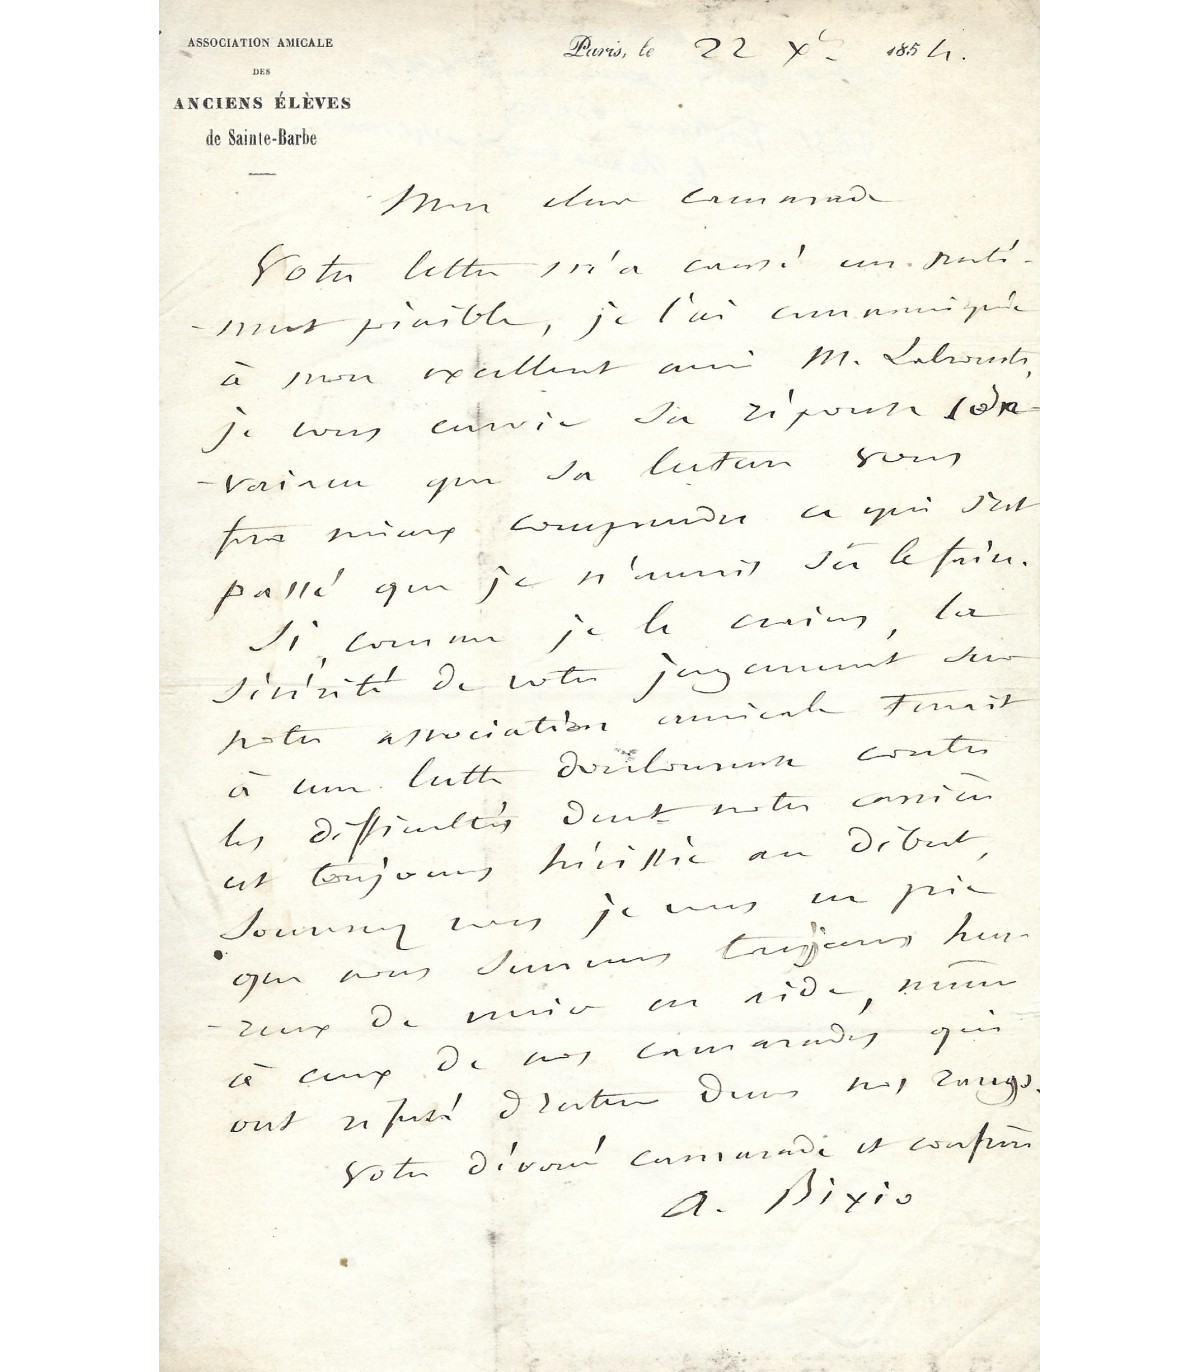 ASSOCIATION AMICALE
DES
ANCIENS ÉLÈVES
de Sainte-Barbe
Paris, le 22 Xbre 1854.
Mon cher camarade
Votre lettre m'a causé un senti-
-ment pénible, je l'ai communiquée
à mon excellent ami M. Labrouste,
je vous envoie sa réponse con-
-vaincu que sa lecture vous
fera mieux comprendre ce qui s'est
passé que je n'aurais su le faire.
Si, comme je le crains, la
sévérité de votre jugement sur
notre association amicale tenait
à une lutte douloureuse contre
les difficultés dont notre carrière
est toujours hérissée au début,
souvenez vous je vous en prie
que nous sommes toujours heu-
-reux de venir en aide, même
à ceux de nos camarades qui
ont refusé d'entrer dans nos rangs.
Votre dévoué camarade et confrère
A. Bixio